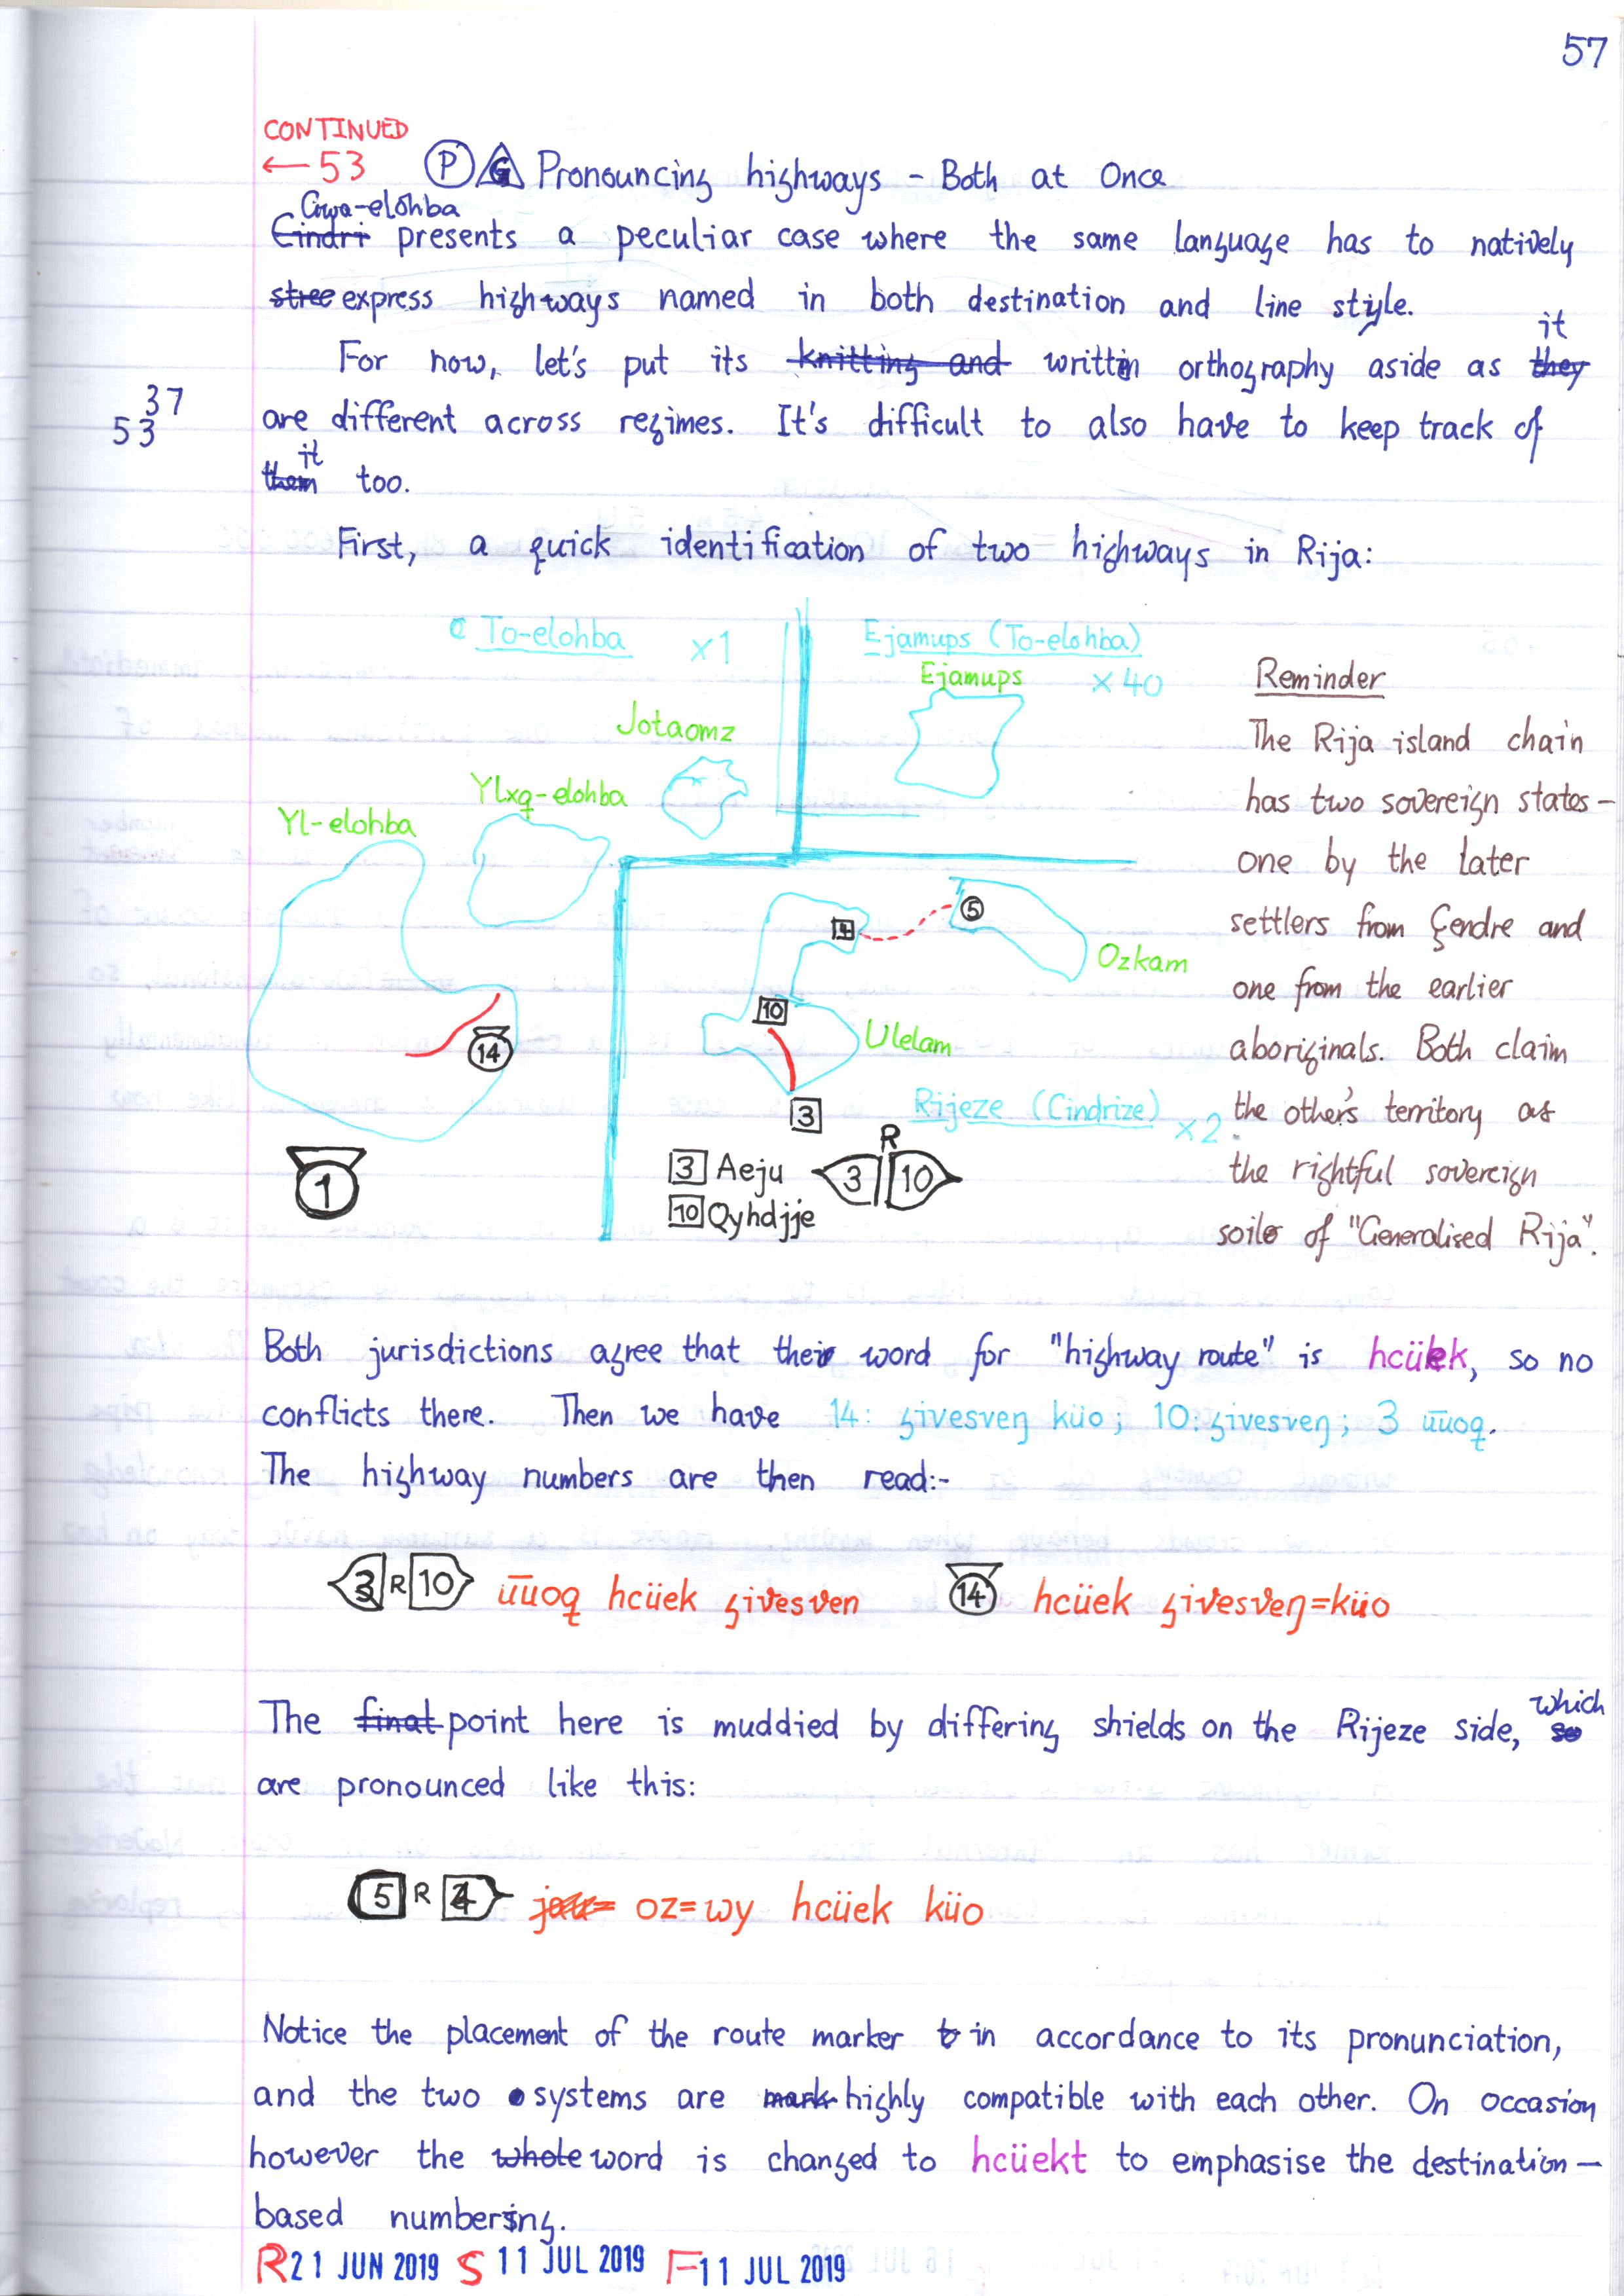 57
CONTINUED
← 53
P G Pronouncing highways - Both at Once
Cindri presents a peculiar case where the same language has to natively
stree express highways named in both destination and line style.
it
For now, let's put its knitting and written orthography aside as they
37
53
are different across regimes. It's difficult to also have to keep track of
it
them too.
First, a quick identification of two highways in Rija:
To-elohba ×1
Ejamups (To-elohba)
Ejamups ×40
Jotaomz
Ylxq-elohba
Yl-elohba
14
1
4
5
Ozkam
10
Ulelam
3
Rijeze (Cindrize) ×2
3 Aeju
10 Qyhdjje
R
3 10
Reminder
The Rija island chain
has two sovereign states-
one by the later
settlers from Çendre and
one from the earlier
aboriginals. Both claim
the other's territory as
the rightful sovereign
soil of "Generalised Rija".
Both jurisdictions agree that their word for "highway route" is hcüek, so no
conflicts there. Then we have 14: givesveŋ küo; 10: givesveŋ; 3 ūuoq.
The highway numbers are then read:-
3 R 10 ūuoq hcüek givesven
14 hcüek givesveŋ=küo
which
The final point here is muddied by differing shields on the Rijeze side, so
are pronounced like this:
5 R 4 oz=wy hcüek küo
Notice the placement of the route marker in accordance to its pronunciation,
and the two systems are mark highly compatible with each other. On occasion
however the whole word is changed to hcüekt to emphasise the destination-
based numbering.
R 21 JUN 2019 S 11 JUL 2019 F 11 JUL 2019